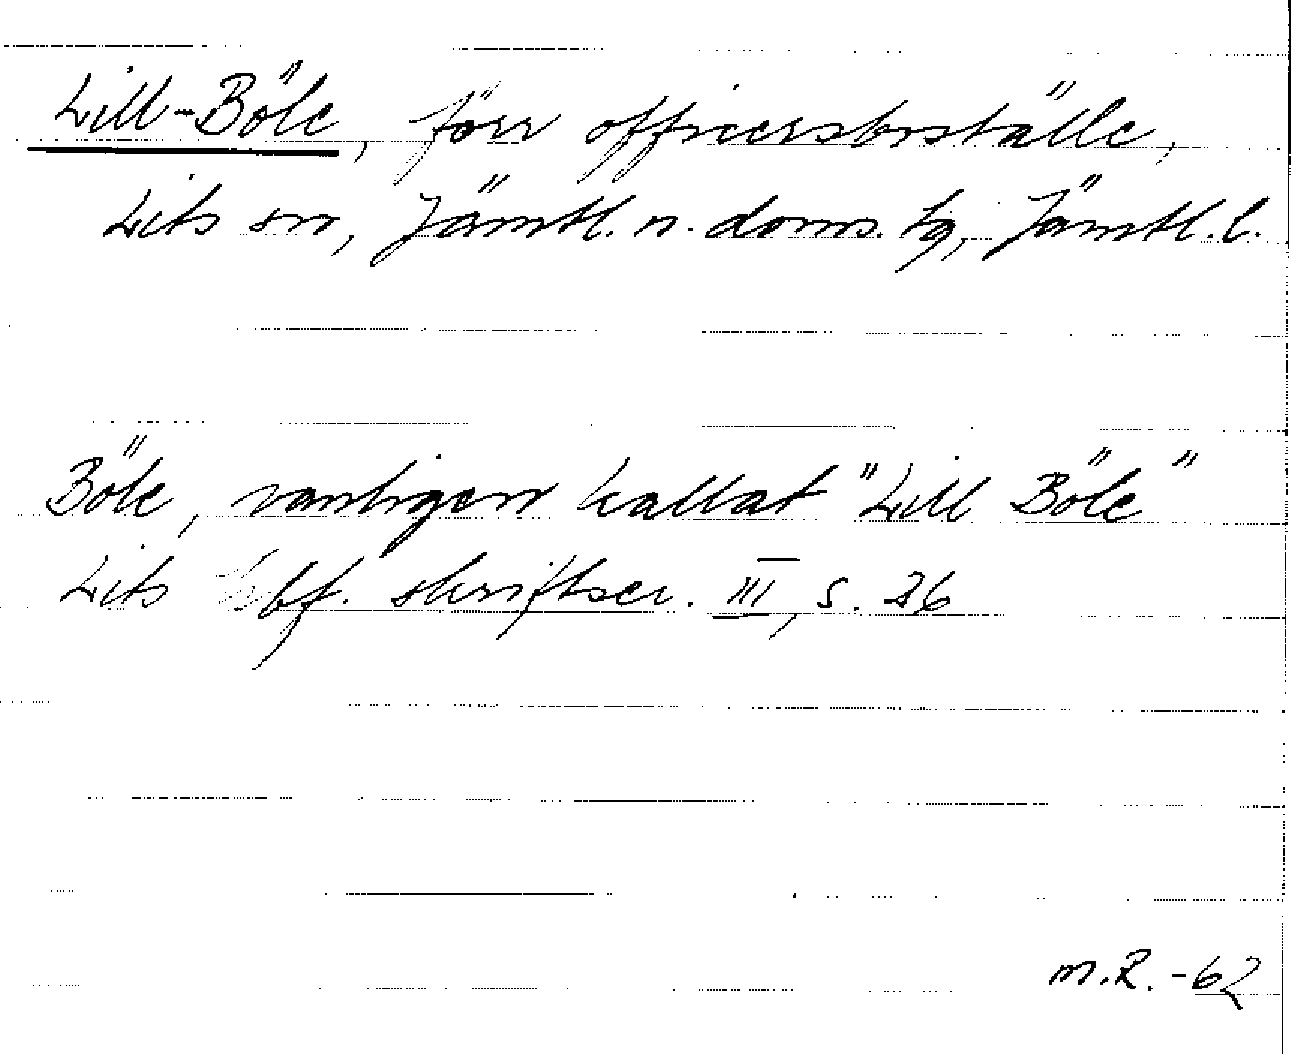 Lill-Böle, förr officersboställe,
Lits sn, Jämtl. n. doms. tg, Jämtl. l.
Böle, vanligen kallat "Lill Böle"
Lits hbf. skriftser. III, s. 26
M.R. -62